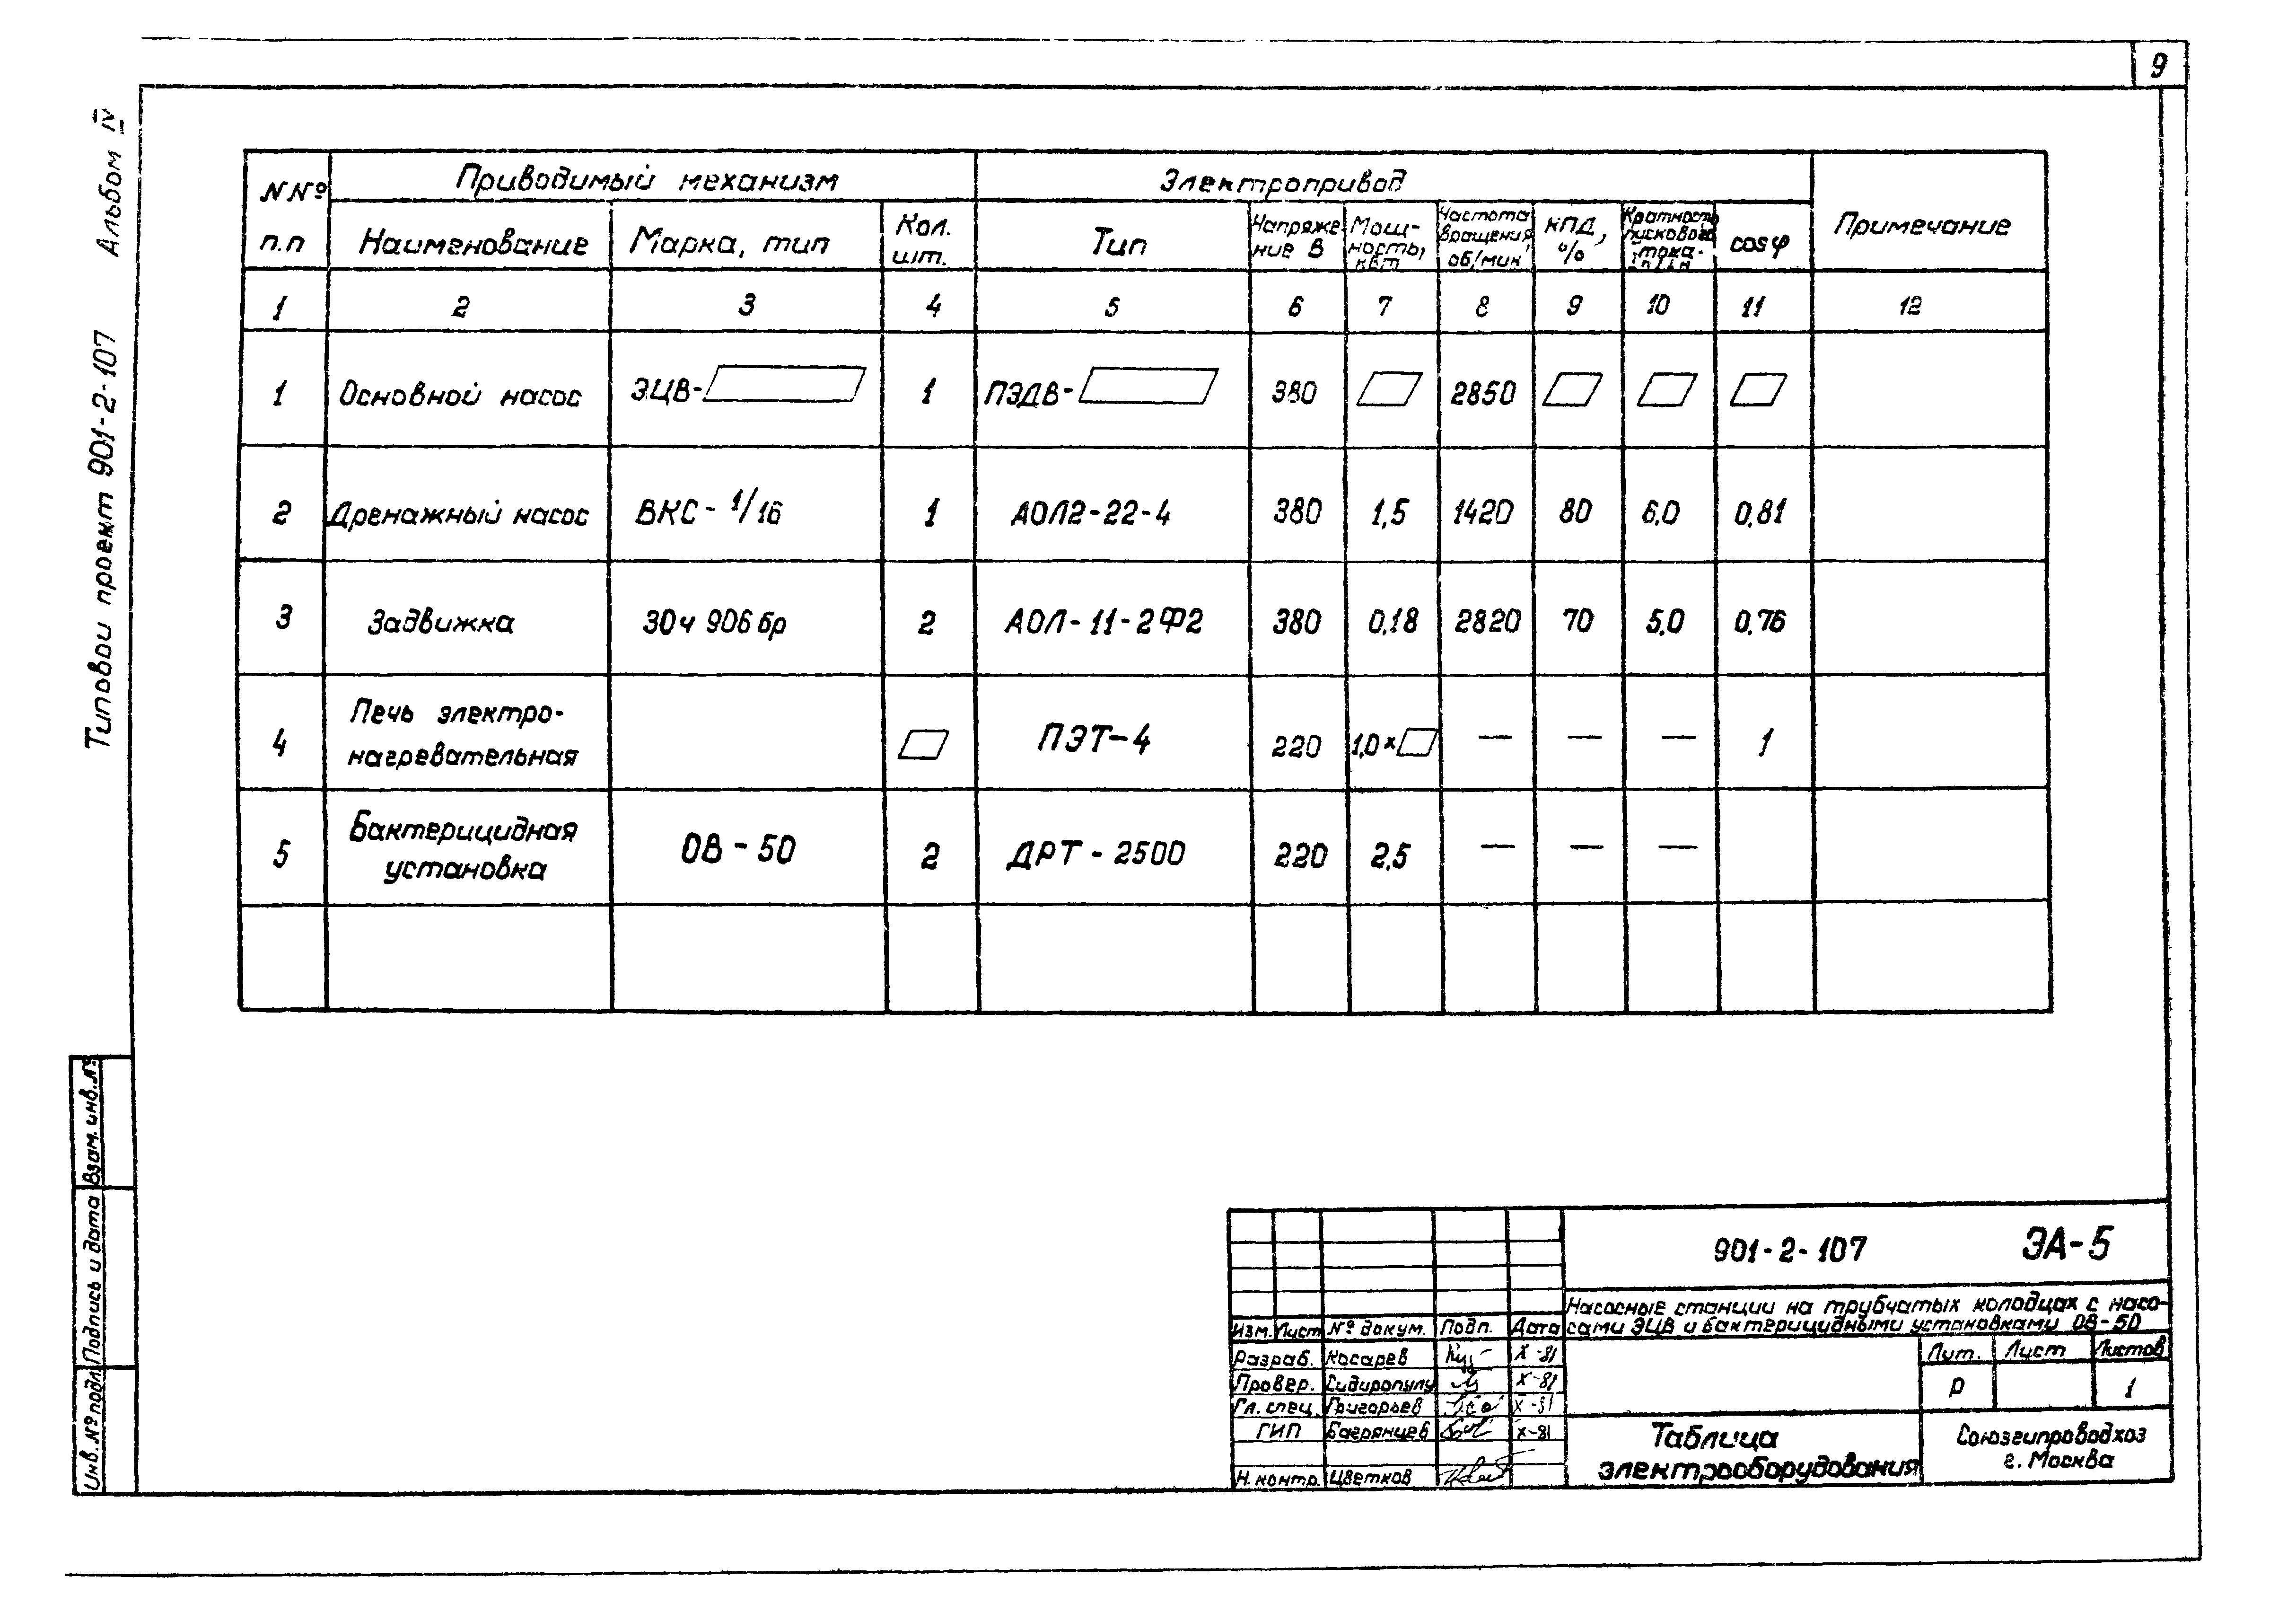 9
Типовой проект 901-2-107 Альбом IV
N Nº п.п Приводимый механизм Электропривод Примечание
Наименование Марка, тип Кол. шт. Тип Напряжение В Мощность, кВт Частота вращения об/мин КПД, % Кратность пускового тока- cos φ
1 2 3 4 5 6 7 8 9 10 11 12
1 Основной насос ЭЦВ- 1 ПЭДВ- 380 2850
2 Дренажный насос ВКС - 1/16 1 АОЛ2-22-4 380 1,5 1420 80 6,0 0,81
3 Задвижка 30ч 906бр 2 АОЛ-11-2Ф2 380 0,18 2820 70 5,0 0,76
4 Печь электро-
нагревательная ПЭТ-4 220 1,0 × — — — 1
5 Бактерицидная
установка ОВ-50 2 ДРТ-2500 220 2,5 — — —
Взам. инв. №
Подпись и дата
Инв. № подл.
901-2-107 ЭА-5
Насосные станции на трубчатых колодцах с насо-
сами ЭЦВ и бактерицидными установками ОВ-50
Изм. Лист № докум. Подп. Дата
Разраб. Косарев X-81
Провер. Сидиропулу X-81
Гл. спец. Григорьев X-81
ГИП Багрянцев X-81
Н. контр. Цветков
Лит. Лист Листов
Р 1
Таблица
электрооборудования
Союзгипроводхоз
г. Москва